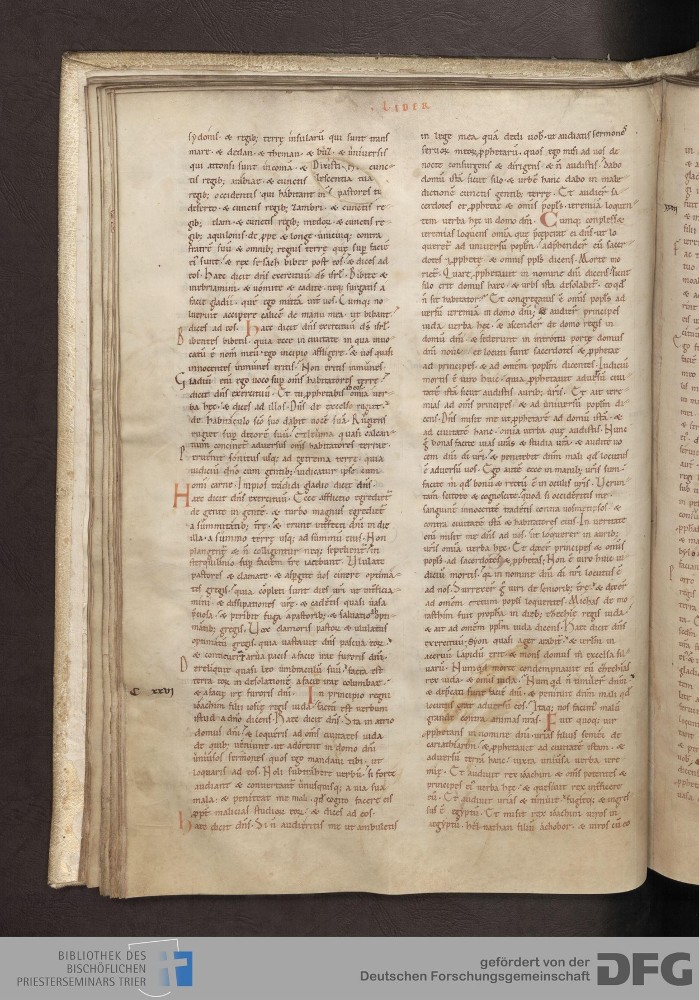 LIBER
sydonis · & regib; terrę insularū qui sunt trans
mare · & dedan · & theman · & buz · & uniuersis
qui attonsi sunt in comā · &
tis regib; arabiae · & cunctis
regib; occidentis qui habitant in
deserto · & cunctis regib; zambri · & cunctis re
gib; elam · & cunctis regib; medoꝝ · & cunctis re
gib; aquilonis · de ꝓpe & longe · unicuiq; contra
fratrē suū · & omnib; regnis terrę quę sup faciē
ei sunt · & rex sesach bibet post eos · & dices ad
eos · Haec dicit dn̄s exercituū d̄s isrł · Bibite &
inebriamini · & uomite · & cadite · neq; surgatis a
facie gladii · quē ego mittā int̄ uos · Cumq; no
luerint accipere calicē de manu tua ut bibant
dices ad eos · Haec dicit dn̄s exercituū d̄s isrł ·
Bibentes bibetis · quia ecce in ciuitate in qua inuo
catū ē nom̄ meū · ego incipio affligere · & uos quasi
innocentes inmunes eritis · Non eritis inmunes ·
Gladiū enī ego uoco sup om̄s habitatores terrę
dicit dn̄s exercituū · Et tu ꝓphetabis ad eos omia uer
ba hęc · & dices ad illos · Dn̄s de excelso rugiet ·
& de habitaculo sc̄o suo dabit uocē suā · Rugiens
rugiet sup decorē suū · celeuma quasi calcan
tium concinet aduersus om̄s habitatores terrae ·
Puenit sonitus usq; ad extrema terrę · quia
iudiciū dn̄o cum gentib; · iudicatur ipse cum
omi carne · Impios tradidi gladio dicit dn̄s ·
Haec dicit dn̄s exercituū · Ecce afflictio egredietr̄
de gente in gentē · & turbo magnus egredietr̄
a summitatib; trę · & erunt int̄fecti dn̄i in die
illa · a summo terrę usq; ad summū eius · Non
plangentr̄ & n̄ colligentur neq; sepelientr̄ · in
sterquilinio sup faciem trę iacebunt · Ululate
pastores & clamate · & aspgite uos cinere optima
tes gregis · quia cōpleti sunt dies uri ut int̄ficia
mini · & dissipationes urę · & cadetis quasi uasa
p̄ciosa · & peribit fuga a pastorib; · & saluatio ab opti
matib; gregis · Uox clamoris pastoꝝ · & ululatus
optimatū gregis · quia uastauit dn̄s pascua eoꝝ
& conticuer̄ arua pacis a facie irae furoris dn̄i ·
Dereliquit quasi leo umbraculū suū · facta est
terra eoꝝ in desolationē a facie irae columbae ·
& a facie irę furoris dn̄i · In principio regni
C XXVI
ioachim filii iosiae regis iuda · factū est uerbum
istud a dn̄o dicens · Haec dicit dn̄s · Sta in atrio
domus dn̄i · & loqueris ad om̄s ciuitates iuda
de quib; ueniunt ut adorent in domo dn̄i
uniuersos sermones quos ego mandaui tibi · ut
loquaris ad eos · Noli subtrahere uerbū · si forte
audiant & conuertantr̄ unusquisq; a uia sua
mala · & peniteat me mali · qd̄ cogito facere eis
ꝓpt̄ malicias studioꝝ eoꝝ · & dices ad eos ·
Haec dicit dn̄s · Si n̄ audieritis me ut ambuletis
in lege mea quā dedi uob̄ · ut audiatis sermones
seruoꝝ meoꝝ ꝓphetarū · quos ego misi ad uos de
nocte consurgens & dirigens · & n̄ audistis · dabo
domū istā sicut silo · & urbē hanc dabo in male
dictionē cunctis gentib; terrę · Et audier̄ sa
cerdotes & ꝓphetę & omnis popls · ieremiā loquen
tem uerba hęc in domo dn̄i · Cumq; complesset
ieremias loquens omia quę p̄ceperat ei dn̄s · ut lo
queret̄ ad uniuersū poplm̄ · adp̄hender̄ eū sacer
dotes · & ꝓphetę · & omnis popls dicens · Morte mo
riet̄ · Quare ꝓphetauit in nomine dn̄i dicens · Sicut
silo erit domus haec · & urbs ista desolabit̄ · eo qd̄
n̄ sit habitator · Et congregatus ē omnis popls ad
uersū ieremiā in domo dn̄i · & audier̄ principes
iuda uerba hęc · & ascender̄ de domo regis in
domū dn̄i · & seder̄unt in introitu portę domus
dn̄i nouę · et locuti sunt sacerdotes & ꝓphetae
ad principes · & ad omnem poplm̄ dicentes · Iudiciū
mortis ē uiro huic · quia ꝓphetauit aduersū ciui
tatē istā sicut audistis aurib; uris · Et ait iere
mias ad om̄s principes · & ad uniuersū poplm̄ di
cens · Dn̄s misit me ut ꝓphetarē ad domū istā · &
ad ciuitatē hanc · omia uerba quę audistis · Nunc
g̊ bonas facite uias uras & studia ura · & audite uo
cem dn̄i di uri · & penitebit dn̄m mali qd̄ locutus
ē aduersū uos · Ego autē ecce in manib; uris sum ·
facite m̄ qd̄ bonū & rectū ē in oculis uris · Verun
tam̄ scitote & cognoscite · quod si occideritis me ·
sanguinē innocentē tradetis contra uosmetipsos · &
contra ciuitatē istā & habitatores eius · In ueritate
enī misit me dn̄s ad uos · ut loquerer in aurib;
uris omia uerba hęc · Et dixer̄ principes & omnis
popls · ad sacerdotes & ꝓphetas · Non ē uiro huic iu
diciū mortis · qa in nomine dn̄i di nri locutus ē
ad nos · Surrexer̄ g̊ uiri de seniorib; trę · & dixer̄
ad omēm cętum popli loquentes · Michas de mo
rasthim fuit propheta in dieb; ezechię regis iuda ·
& ait ad omēm pplm̄ iuda dicens · Haec dicit dn̄s
exercituū · Syon quasi ager arabit̄ · & ierłm in
aceruū lapidū erit · & mons domus in excelsa sil
uarū · Nunq̇d morte condempnauit eū ezechias
rex iuda · & omis iuda · Nunq̇d n̄ timuer̄ dn̄m
& dep̄cati sunt faciē dn̄i · & penituit dn̄m mali qd̄
locutus erat aduersū eos · Itaq; nos facim̄ malū
grande contra animas nras · Fuit quoq; uir
ꝓphetans in nomine dn̄i · urias filius semei de
cariathiarim · & ꝓphetauit ad ciuitatē istam · &
aduersū terrā hanc · iuxta uniuersa uerba iere
mię · Et audiuit rex ioachim & om̄s potentes &
principes ei uerba hęc · & quesiuit rex int̄ficere
eū · Et audiuit urias & timuit · fugitq; & ingres
sus ē egyptū · Et misit rex ioachim uiros in
egyptū · helnathan filiū achobor · & uiros cū eo
BIBLIOTHEK DES
BISCHÖFLICHEN
PRIESTERSEMINARS TRIER
gefördert von der
Deutschen Forschungsgemeinschaft
DFG